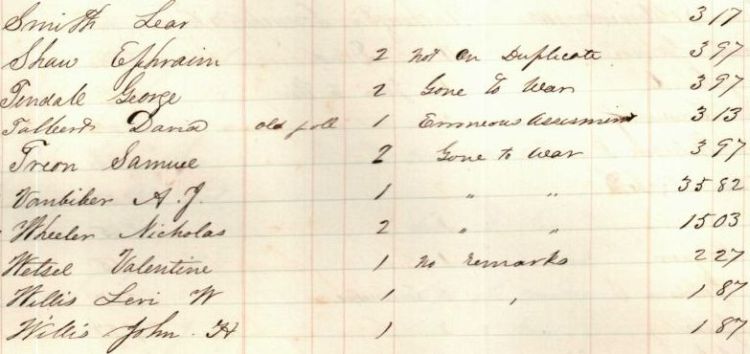 Smith Lear 3 17
Shaw Ephraim 2 Not on Duplicate 3 97
Tindale George 2 Gone to War 3 97
Talbert David old poll 1 Erroneous Assesment 3 13
Treon Samuel 2 Gone to War 3 97
Vanbiber A. J. 1 " " 35 82
Wheeler Nicholas 2 " " 15 03
Wetsel Valentine 1 No remarks 2 27
Willis Levi W 1 " 1 87
Willis John H 1 1 87